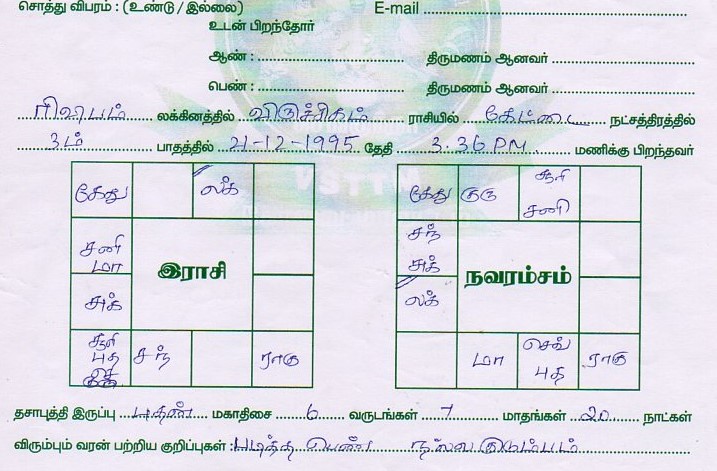 சொத்து விபரம் : (உண்டு / இல்லை) E-mail
உடன் பிறந்தோர்
ஆண் : திருமணம் ஆனவர்
பெண் : திருமணம் ஆனவர்
ரிஷபம் லக்கினத்தில் விருச்சிகம் ராசியில் கேட்டை நட்சத்திரத்தில்
3ம் பாதத்தில் 21-12-1995 தேதி 3.36 PM மணிக்கு பிறந்தவர்
கேது லக் கேது குரு சூரி சனி
சனி மா இராசி சந் சுக் நவரம்சம்
சுக் லக்
சூரி புத சந் ராகு மா செவ் புத ராகு
தசாபுத்தி இருப்பு புதன் மகாதிசை 6 வருடங்கள் 7 மாதங்கள் 20 நாட்கள்
விரும்பும் வரன் பற்றிய குறிப்புகள் : படித்த பெண் நல்ல குடும்பம்